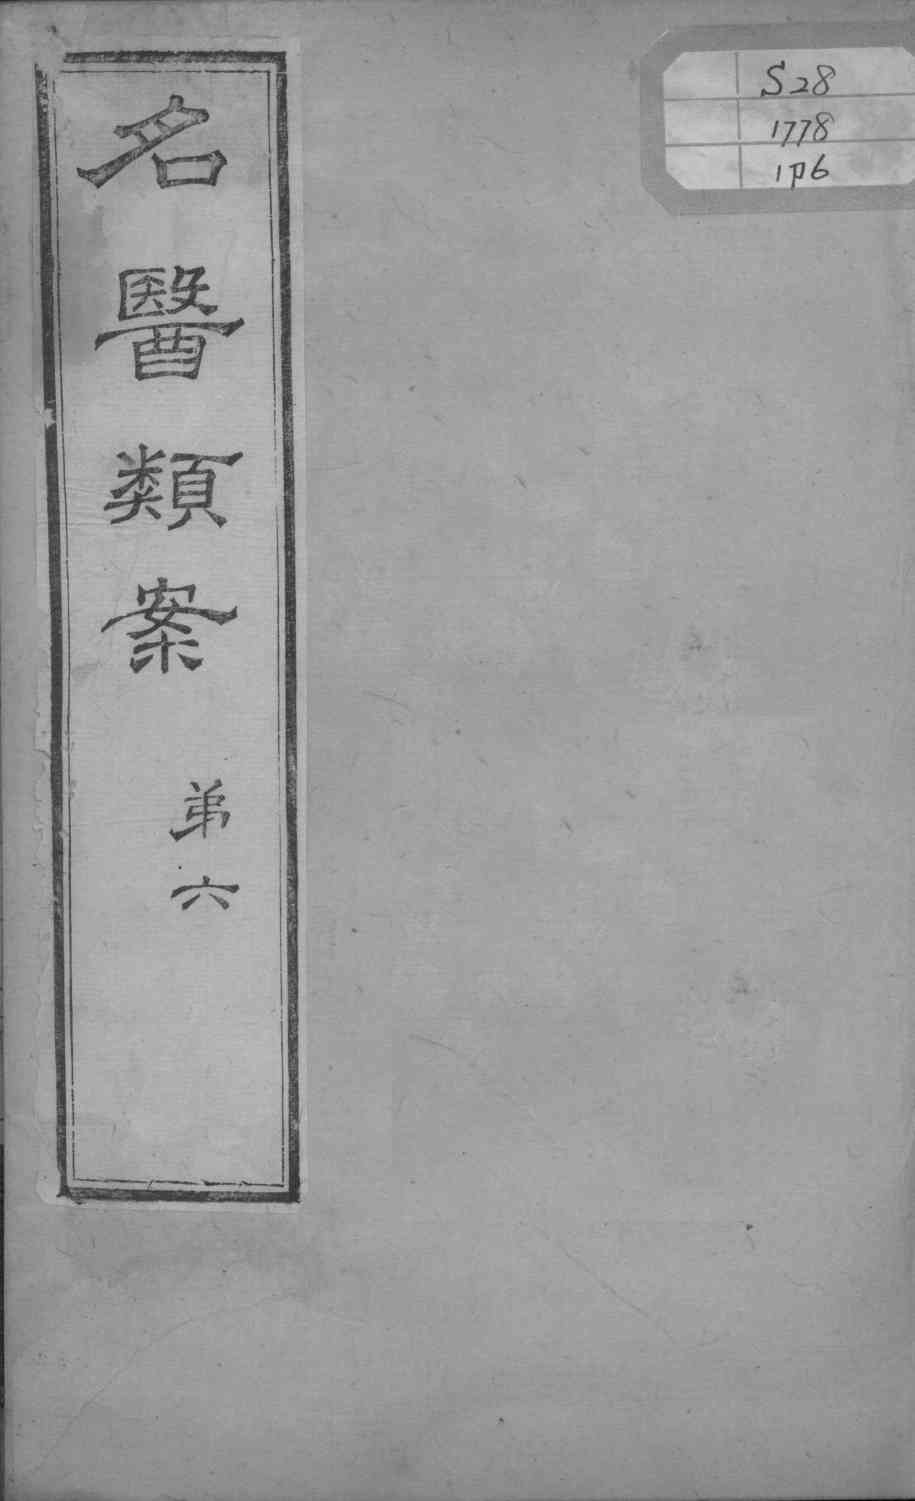 名醫類案
弟六
S28
1778
1p6